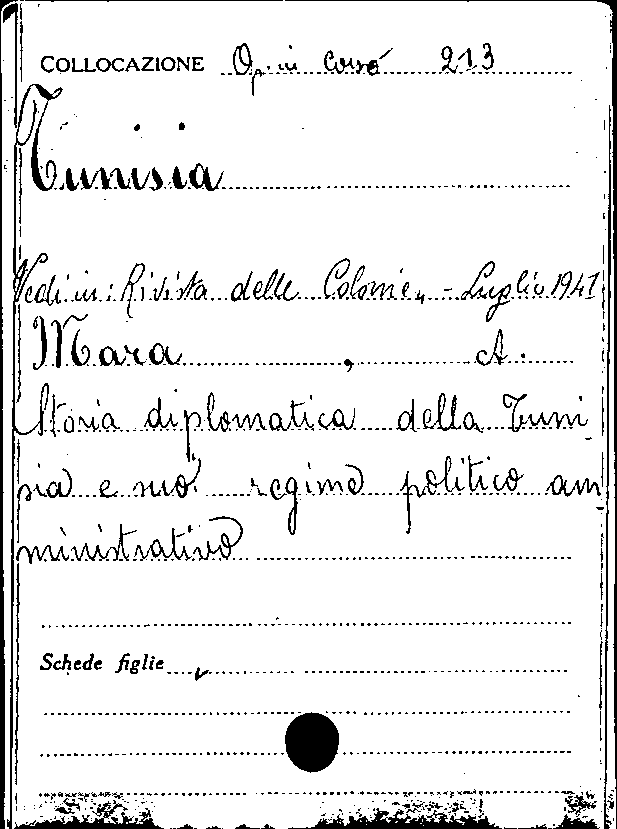 COLLOCAZIONE Op. in corso 213
Tunisia
Vedi in: Rivista delle Colonie„ - Luglio 1941
Mara, A.
Storia diplomatica della Tuni-
sia e suo regime politico am-
ministrativo
Schede figlie